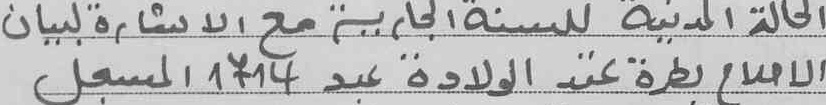 الحالة المدنية للسنة الجارية مع الاشارة لبيان
الاصلاح بطرة عقد الولادة عدد 1714 المسجل